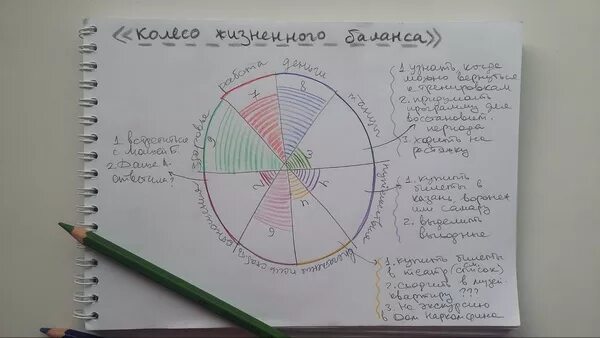 «Колесо жизненного баланса»
работа
деньги
танцы
путешествия
впечатления
отношения
здоровье
7
8
3
4
4
6
2
9
1. узнать, когда
можно вернуться
к тренировкам
2. придумать
программу для
восстановит.
периода
3. ходить на
растяжку
1. купить
билеты в
казань, воронеж
или самару
2. выделить
выходные
1. купить билеты
в театр (см. список)
2. сходить в музей-
квартиру ???
3. На экскурсию
в Дом Наркомфина
1. встретиться
2. Даше А.
ответила?